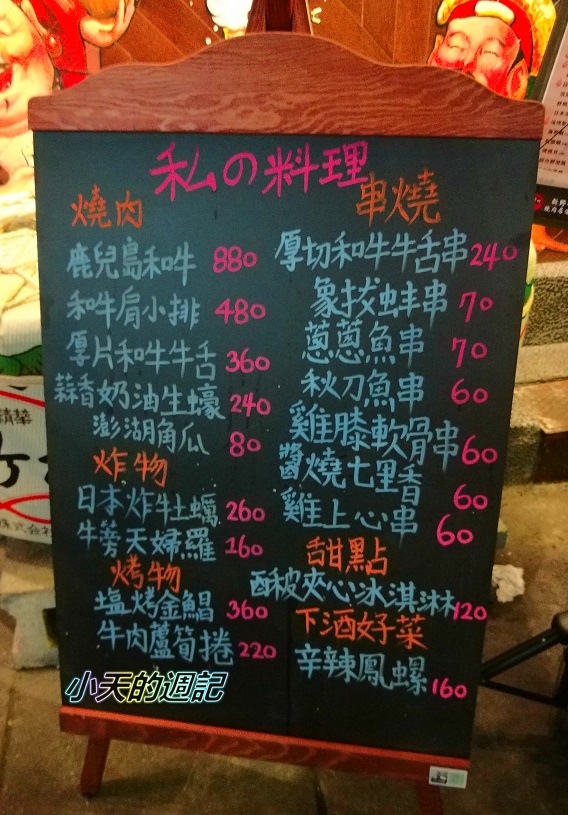 私の料理
燒肉
鹿兒島和牛 880
和牛肩小排 480
厚片和牛牛舌 360
蒜香奶油生蠔 240
澎湖角瓜 80
炸物
日本炸牡蠣 260
牛蒡天婦羅 160
烤物
塩烤金鯧 360
牛肉蘆筍捲 220
串燒
厚切和牛牛舌串 240
象拔蚌串 70
蔥蔥魚串 70
秋刀魚串 60
雞膝軟骨串 60
醬燒七里香 60
雞上心串 60
甜點
酥皮夾心冰淇淋 120
下酒好菜
辛辣鳳螺 160
小天的週記